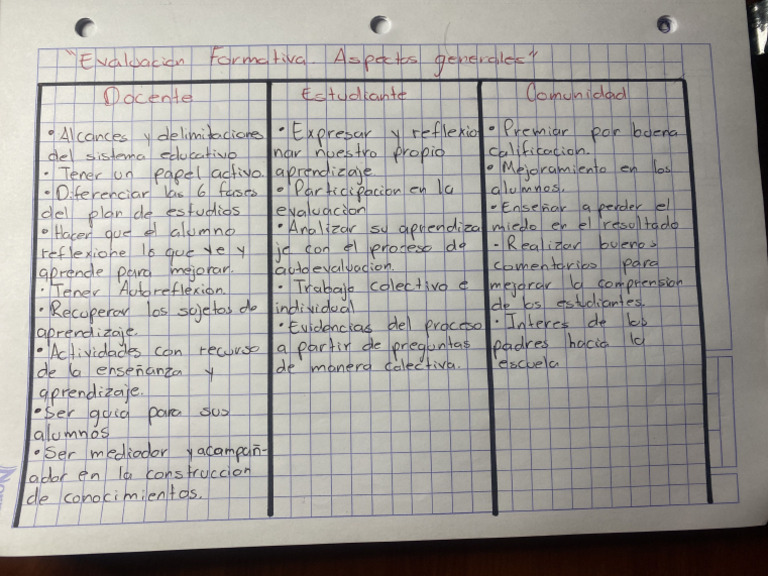 "Evaluacion Formativa. Aspectos generales"
Docente
• Alcances y delimitaciones
del sistema educativo
• Tener un papel activo
• Diferenciar las 6 fases
del plan de estudios
• Hacer que el alumno
reflexione lo que ve y
aprende para mejorar.
• Tener Autoreflexion.
• Recuperar los sujetos de
aprendizaje.
• Actividades con recurso
de la enseñanza y
aprendizaje.
• Ser guia para sus
alumnos
• Ser mediador y acompañ-
ador en la construccion
de conocimientos.
Estudiante
• Expresar y reflexio
nar nuestro propio
aprendizaje
• Participacion en la
evaluacion
• Analizar su aprendiza
je con el proceso de
autoevaluacion.
• Trabajo colectivo e
individual
• Evidencias del proceso
a partir de preguntas
de manera colectiva.
Comunidad
• Premiar por buena
calificacion.
• Mejoramiento en los
alumnos.
• Enseñar a perder el
miedo en el resultado
• Realizar buenos
comentarios para
mejorar la comprension
de los estudiantes.
• Interes de los
padres hacia la
escuela